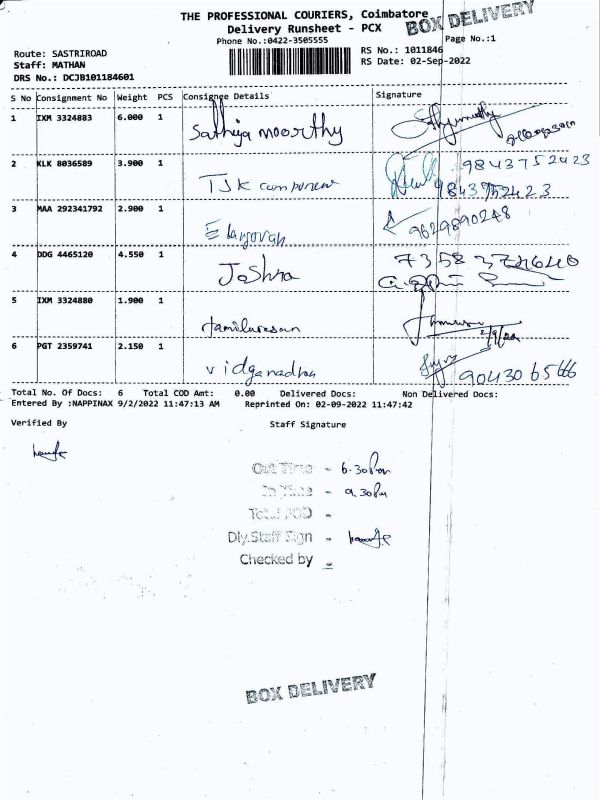 THE PROFESSIONAL COURIERS, Coimbatore
BOX DELIVERY
Delivery Runsheet - PCX
Phone No.:0422-3505555
Page No.:1
Route: SASTRIROAD
RS No.: 1011846
Staff: MATHAN
RS Date: 02-Sep-2022
DRS No.: DCJB101184601
S No Consignment No Weight PCS Consignee Details Signature
1 IXM 3324883 6.000 1
Sathya moorthy
2 KLK 8036589 3.900 1
9843752423
TSK component
9843752423
3 MAA 292341792 2.900 1
9629890248
Elangovan
4 DDG 4465120 4.550 1
Joshna
5 IXM 3324880 1.900 1
tamilarasan
2/9/22
6 PGT 2359741 2.150 1
vidyanadha
9043065666
Total No. Of Docs: 6 Total COD Amt: 0.00 Delivered Docs: Non Delivered Docs:
Entered By :NAPPINAX 9/2/2022 11:47:13 AM Reprinted On: 02-09-2022 11:47:42
Verified By Staff Signature
Out Time - 6.30 Pm
In Time - 9.30 Pm
Total POD -
Dly.Staff Sign -
Checked by -
BOX DELIVERY